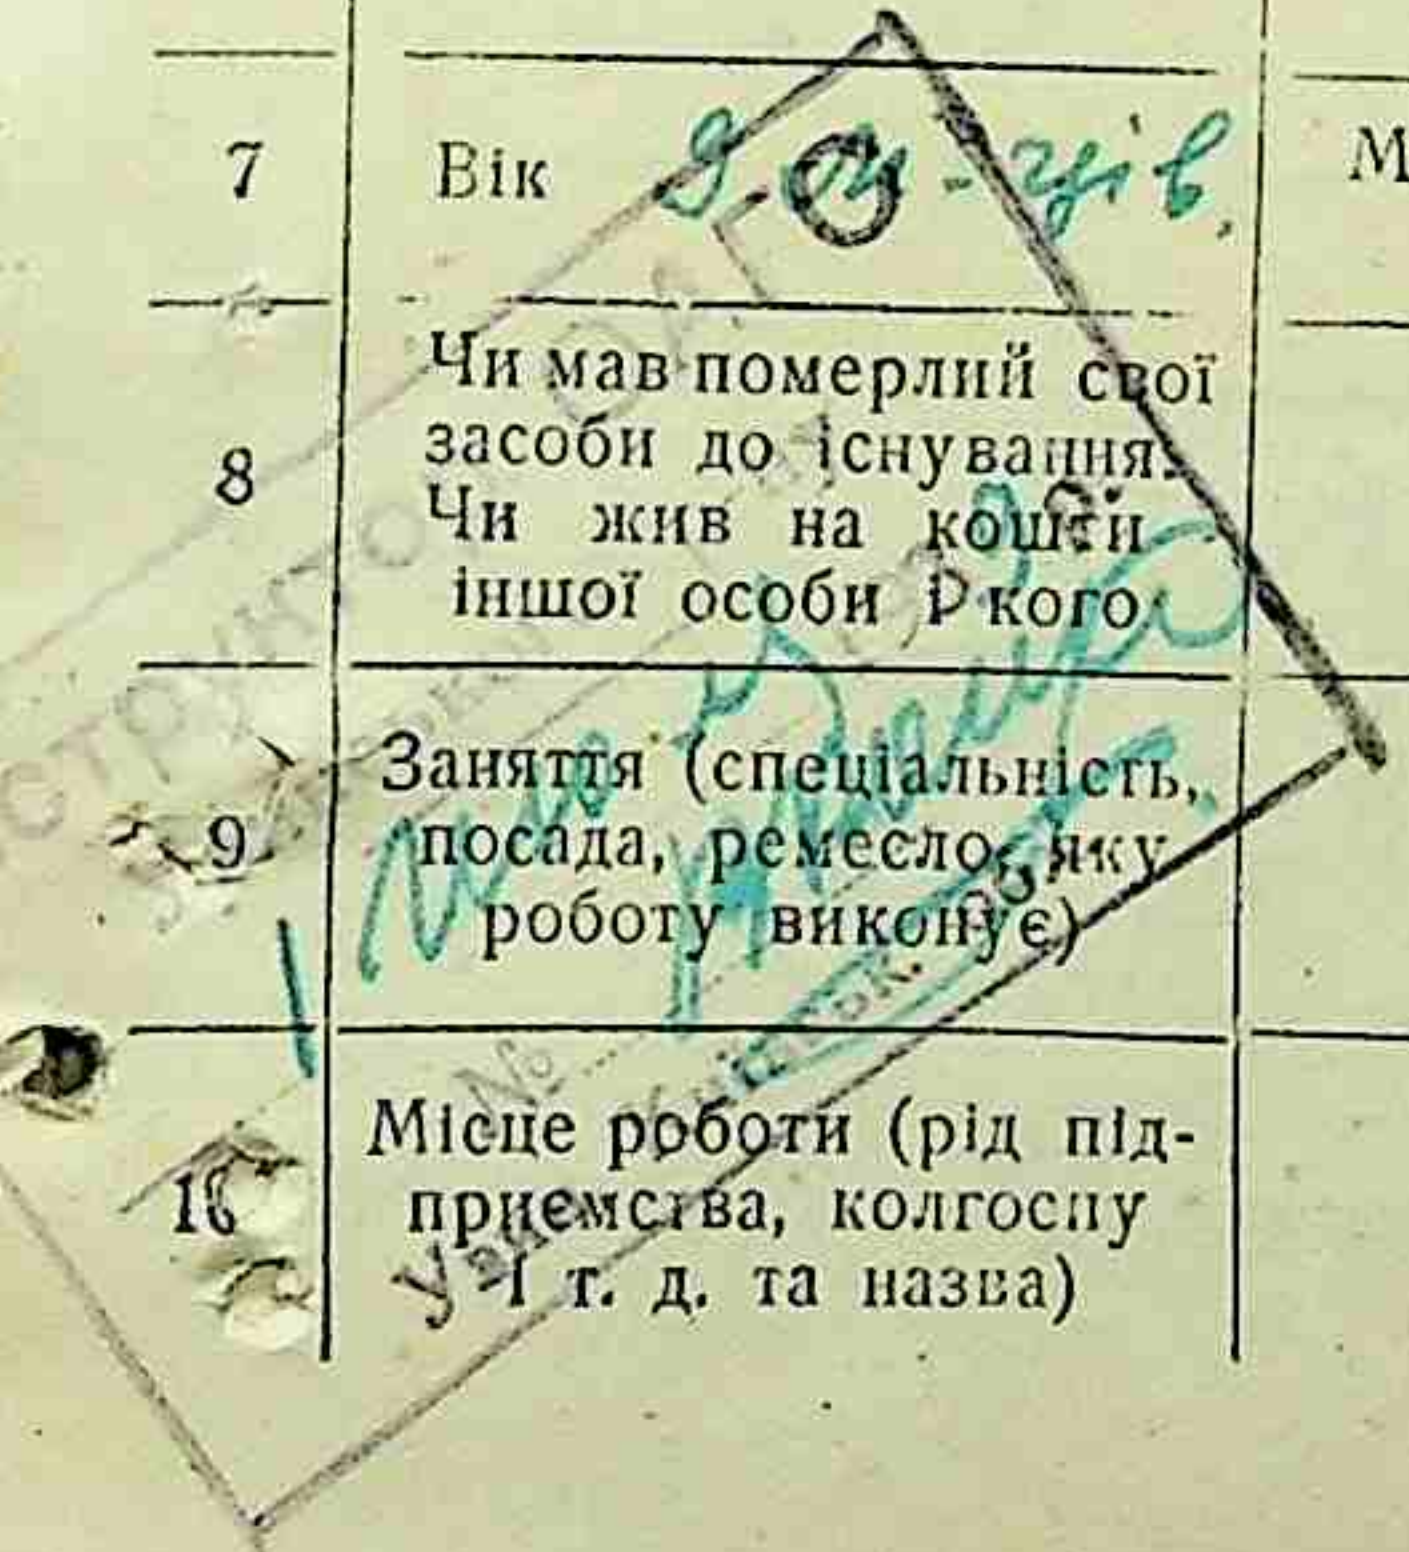 7 Вік 9 м-ців М
8 Чи мав померлий свої
засоби до існування.
Чи жив на кошти
іншої особи і кого
9 Заняття (спеціальність,
посада, ремесло, яку
роботу виконує)
№
10 Місце роботи (рід під-
приємства, колгоспу
і т. д. та назва)